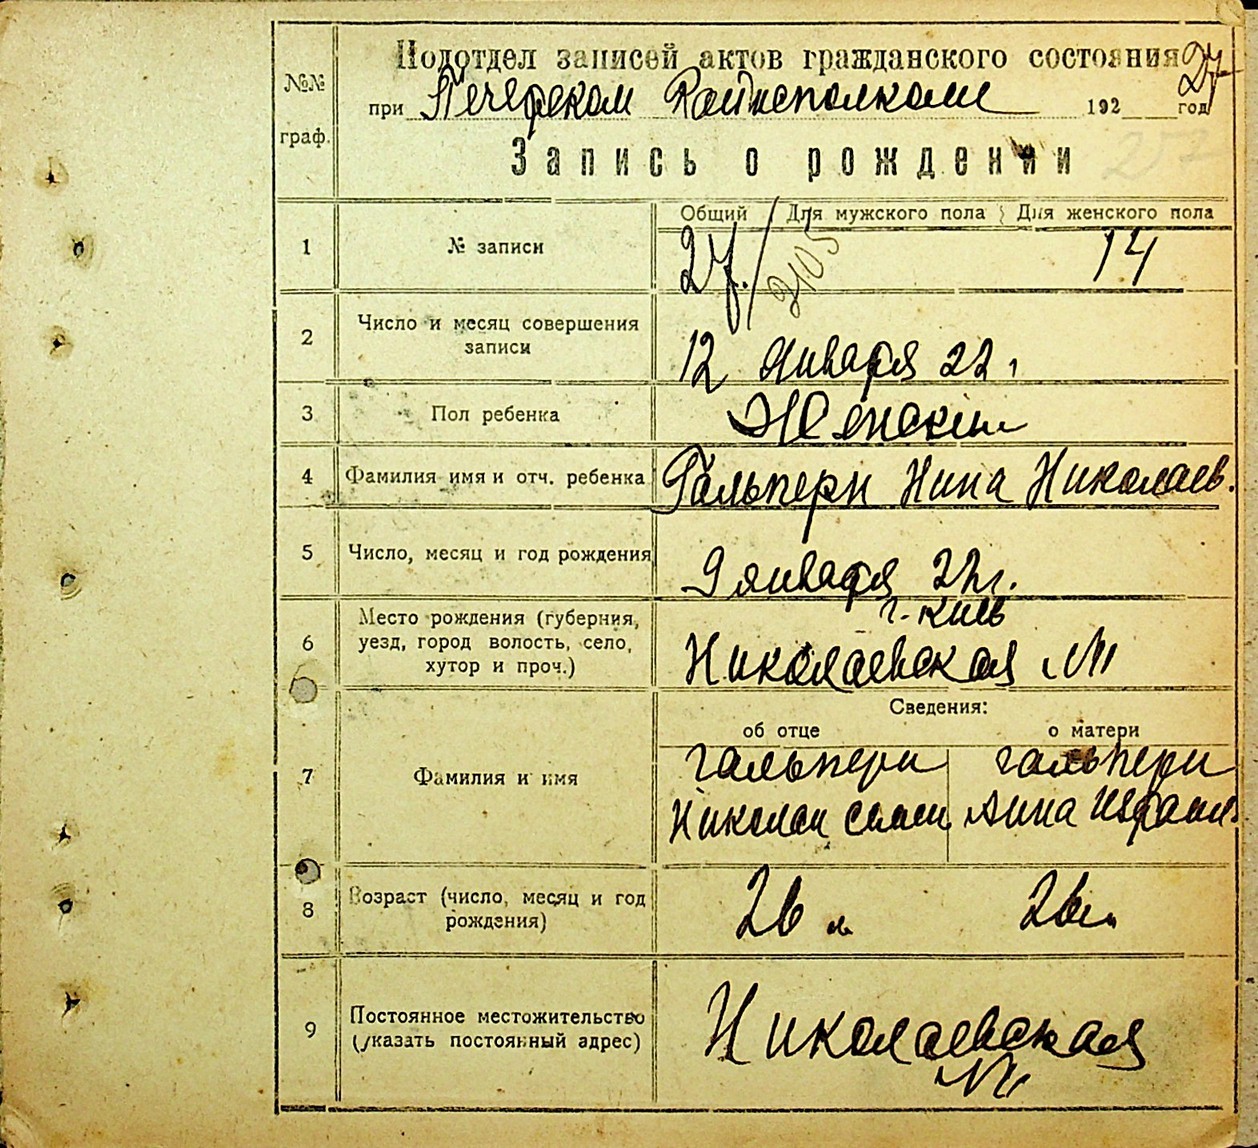 Подотдел записей актов гражданского состояния
при Печерском Райисполкоме 192 год
№№ граф.
Запись о рождении
Общий Для мужского пола Для женского пола
1 № записи 27. 2105 14
2 Число и месяц совершения
записи
12 января 22 г
3 Пол ребенка Женский
4 Фамилия имя и отч. ребенка Гальперн Нина Николаев.
5 Число, месяц и год рождения 9 января 22 г.
6 Место рождения (губерния,
уезд, город волость, село,
хутор и проч.)
г. Киев
Николаевская
Сведения:
об отце о матери
7 Фамилия и имя
Гальперн Гальперн
Николай Анна Израил
8 Возраст (число, месяц и год
рождения)
26 л. 26 л.
9 Постоянное местожительство
(указать постоянный адрес)
Николаевская